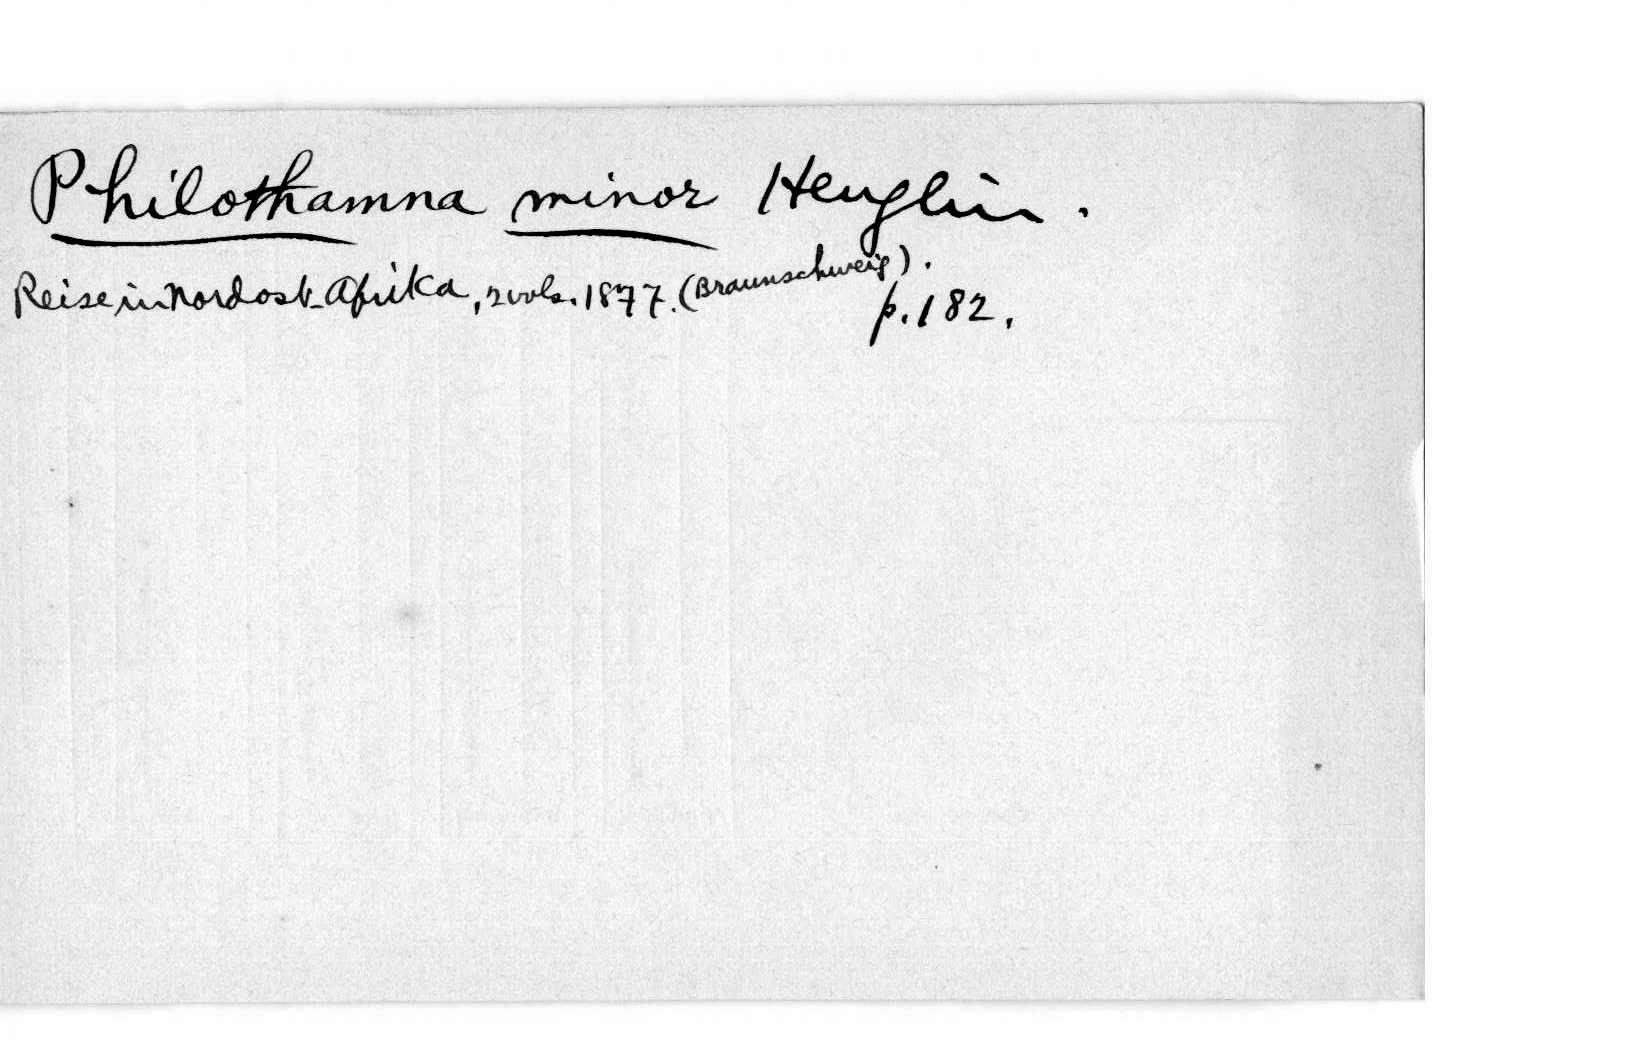 Philothamna minor Heuglin.
Reise in Nordost-Afrika, 2 vols. 1877. (Braunschweig).
p. 182.